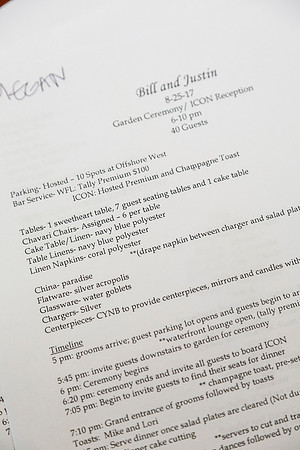 MEGAN
Bill and Justin
8-25-17
Garden Ceremony/ ICON Reception
6-10 pm
40 Guests
Parking- Hosted – 10 Spots at Offshore West
Bar Service- WFL: Tally Premium $100
ICON: Hosted Premium and Champagne Toast
Tables- 1 sweetheart table, 7 guest seating tables and 1 cake table
Chavari Chairs- Assigned – 6 per table
Cake Table/Linen- navy blue polyester
Table Linens- navy blue polyester
Linen Napkins- coral polyester
**(drape napkin between charger and salad plat
China- paradise
Flatware- silver acropolis
Glassware- water goblets
Chargers- Silver
Centerpieces- CYNB to provide centerpieces, mirrors and candles with
Timeline
5 pm: grooms arrive; guest parking lot opens and guests begin to ar
**waterfront lounge open, (tally premi
5:45 pm: invite guests downstairs to garden for ceremony
6 pm: Ceremony begins
6:20 pm: ceremony ends and invite all guests to board ICON
7:05 pm: Begin to invite guests to find their seats for dinner
** champagne toast, pre-set
7:10 pm: Grand entrance of grooms followed by toasts
Toasts: Mike and Lori
pm: Serve dinner once salad plates are cleared (Not du
dinner cake cutting
**servers to cut and tra
dances followed by o